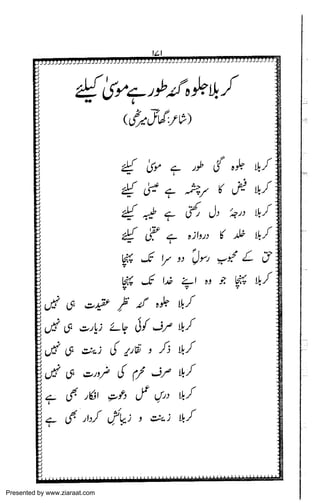 ۱۷۱
کربلا جلوہ گۂ طور ہے موسیٰ کیلئے
(شاعر: گھائل میرٹھی)
کربلا جلوہ گئی طور ہے موسیٰ کیلئے
کربلا فیض کا سرچشمہ ہے عیسیٰ کیلئے
کربلا درجۂ دل رکھتی ہے طیبہ کیلئے
کربلا خلد کا دروازہ ہے عقبیٰ کیلئے
حق کے محبوب رسولؐ دو سرا تک پہنچا
کربلا پہنچا جو وہ اپنے خدا تک پہنچا
کربلا جلوہ گئہ نظرِ عقیدت ہی نہیں
کربلا صرف کوئی جائے زیارت ہی نہیں
کربلا ذکر و تقاریر کی زینت ہی نہیں
کربلا صرف محرم کی ضرورت ہی نہیں
کربلا درسِ عمل دعوتِ افکار بھی ہے
کربلا زینت و زیبائشِ کردار بھی ہے
Presented by www.ziaraat.com